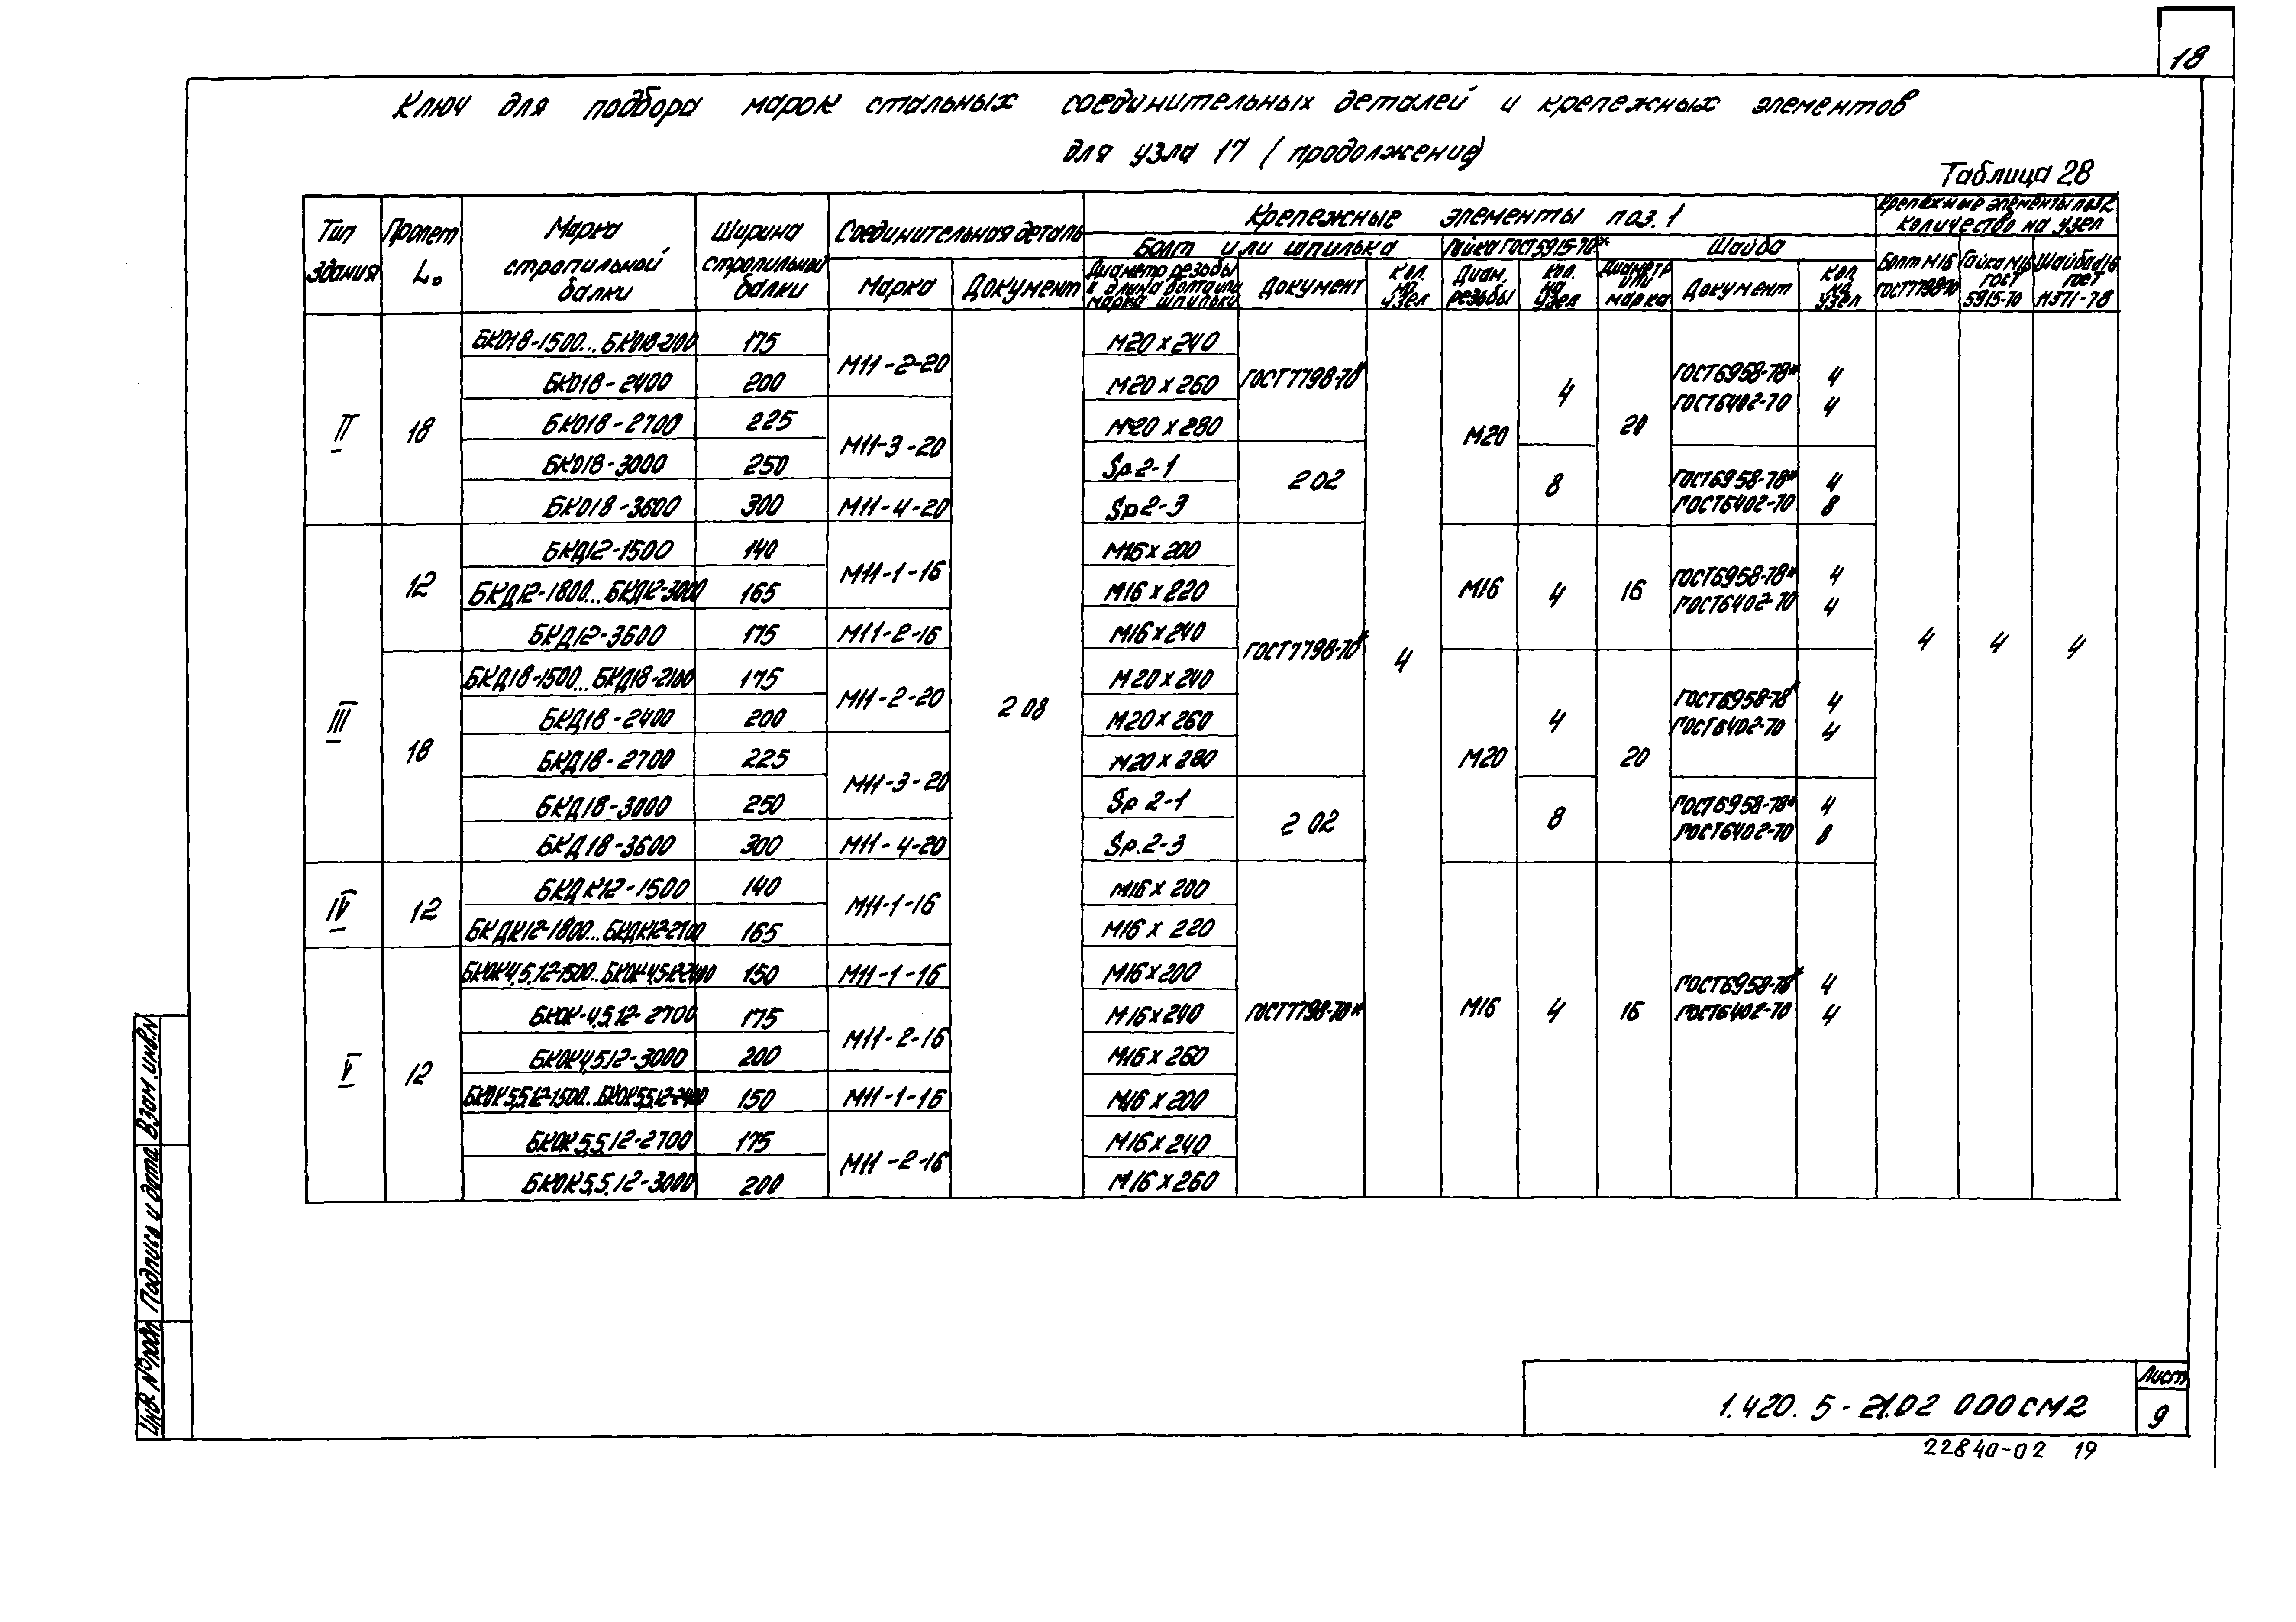 18
Ключ для подбора марок стальных соединительных деталей и крепежных элементов
для узла 17 (продолжение)
Таблица 28
Тип здания | Пролет L₀ | Марка стропильной балки | Ширина стропильной балки | Соединительная деталь | Крепежные элементы поз. 1 | Крепежные элементы поз. 2 количество на узел
Марка | Документ | Болт или шпилька | Гайка ГОСТ 5915-70* | Шайба | Болт М16 ГОСТ 7798-70 | Гайка М16 ГОСТ 5915-70 | Шайба ф16 ГОСТ 11371-78
Диаметр резьбы и длина болта или марка шпильки | Документ | Кол. на узел | Диам. резьбы | Кол. на узел | Диаметр или марка | Документ | Кол. на узел
II | 18 | БКО18-1500...БКО18-2100 | 175 | М11-2-20 | 2 08 | М20х240 | ГОСТ 7798-70* | 4 | М20 | 4 | 20 | ГОСТ 6958-78* | 4 | 4 | 4 | 4
БКО18-2400 | 200 | М20х260 | ГОСТ 6402-70 | 4
БКО18-2700 | 225 | М11-3-20 | М20х280
БКО18-3000 | 250 | Sp.2-1 | 2 02 | 8 | ГОСТ 6958-78* | 4
БКО18-3600 | 300 | М11-4-20 | Sp2-3 | ГОСТ 6402-70 | 8
III | 12 | БКД12-1500 | 140 | М11-1-16 | М16х200 | ГОСТ 7798-70* | М16 | 4 | 16 | ГОСТ 6958-78* | 4
БКД12-1800...БКД12-3000 | 165 | М16х220 | ГОСТ 6402-70 | 4
БКД12-3600 | 175 | М11-2-16 | М16х240
18 | БКД18-1500...БКД18-2100 | 175 | М11-2-20 | М20х240 | М20 | 4 | 20 | ГОСТ 6958-78* | 4
БКД18-2400 | 200 | М20х260 | ГОСТ 6402-70 | 4
БКД18-2700 | 225 | М11-3-20 | М20х280
БКД18-3000 | 250 | Sp 2-1 | 2 02 | 8 | ГОСТ 6958-78* | 4
БКД18-3600 | 300 | М11-4-20 | Sp.2-3 | ГОСТ 6402-70 | 8
IV | 12 | БКДК12-1500 | 140 | М11-1-16 | М16х200 | ГОСТ 7798-70* | М16 | 4 | 16 | ГОСТ 6958-78* | 4
БКДК12-1800...БКДК12-2700 | 165 | М16х220 | ГОСТ 6402-70 | 4
V | 12 | БКОК4,5.12-1500...БКОК4,5.12-2400 | 150 | М11-1-16 | М16х200
БКОК-4,5.12-2700 | 175 | М11-2-16 | М16х240
БКОК4,5.12-3000 | 200 | М16х260
БКОК5,5.12-1500...БКОК5,5.12-2400 | 150 | М11-1-16 | М16х200
БКОК5,5.12-2700 | 175 | М11-2-16 | М16х240
БКОК5,5.12-3000 | 200 | М16х260
Взам.инв.N
Подпись и дата
Инв. №подл.
1.420.5-21.02 000СМ2
Лист
9
22840-02 19